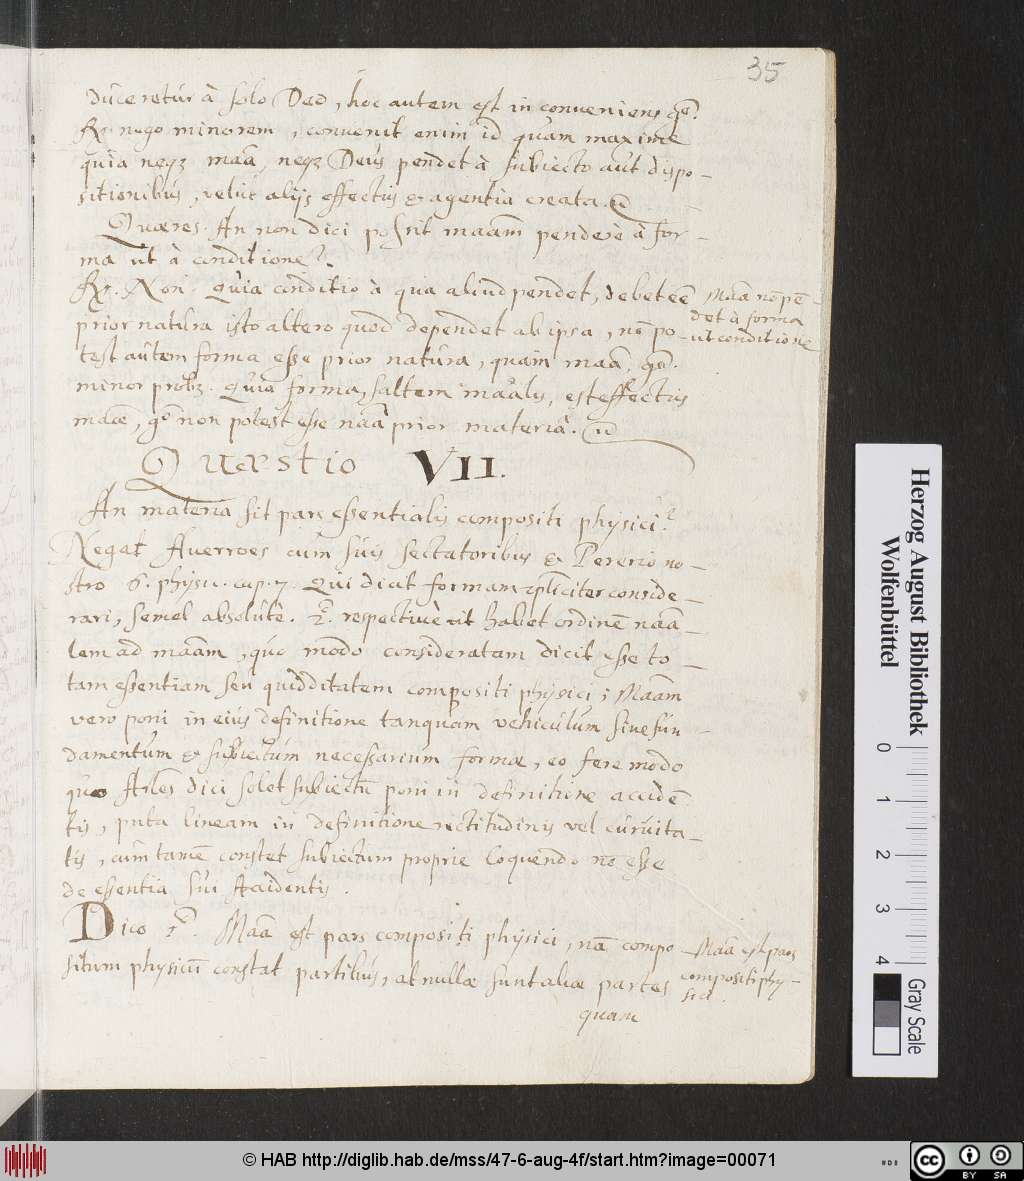 35
duceretur à solo Deo, hoc autem est in conveniens g̃.
R. nego minorem, convenit enim id quam maxime
quia neqȝ maã, neqȝ Deus pendet à subiecto aut dispo-
sitionibus, velut alijs effectus & agentia creata.
Quæres. An non dici possit maãm pendere à for-
ma ut à conditione?
R. Non. Quia conditio à qua aliud pendet, debet eẽ
prior natura isto altero quod dependet ab ipsa, nõ po-
test autem forma esse prior natura, quam maã. g̃.
minor probȝ. Quia forma, saltem maãlis, est effectus
maæ, g̃ non potest esse naã prior materiâ.
Maã nõ pẽ-
det à forma
ut conditione
Quæstio VII.
An materia sit pars essentialis compositi physici?
Negat Averroes cum suis sectatoribus & Pererio no-
stro 6. physic. cap. 7. Qui dicit formam dupliciter conside-
rari, semel absolutè. 2º. respectivè ut habet ordinẽ naã-
lem ad maãm, quo modo consideratam dicit esse to-
tam essentiam seu quidditatem compositi physici; Maãm
vero poni in eius definitione tanquam vehiculum sive fun-
damentum & subiectum necessarium formæ, eo fere modo
quo Ariles dici solet subiectũ poni in definitione accidẽ
tis, puta lineam in definitione rectitudinis vel curvita-
tis, cum tamẽ constet subiectum proprie loquendo nõ esse
de essentia sui Accidentis.
Dico 1º. Maã est pars compositi physici, nã compo
situm physicũ constat partibus, at nullæ sunt aliæ partes
quam
Maã est pars
compositi phy-
sici.
Herzog August Bibliothek
Wolfenbüttel
0 1 2 3 4
Gray Scale
© HAB http://diglib.hab.de/mss/47-6-aug-4f/start.htm?image=00071
cc BY SA